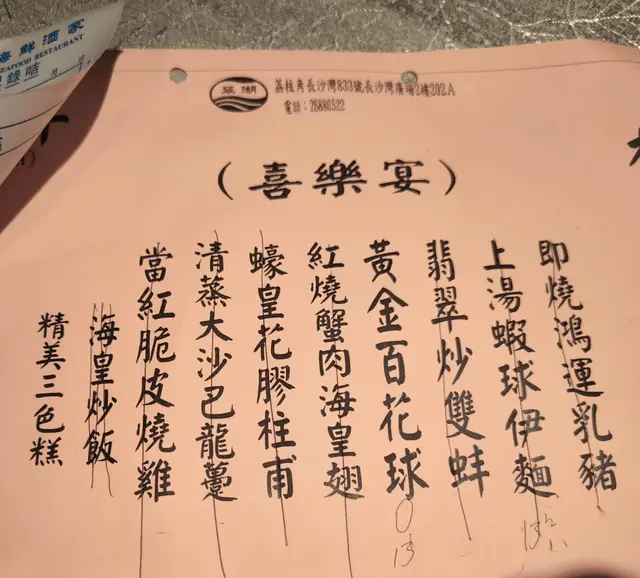 海鮮酒家
EAFOOD RESTAURANT
錄咭
翠湖
荔枝角長沙灣833號長沙灣廣場2樓202A
電話：26880522
（喜樂宴）
即燒鴻運乳豬
上湯蝦球伊麵
翡翠炒雙蚌
黃金百花球
紅燒蟹肉海皇翅
蠔皇花膠柱甫
清蒸大沙巴龍躉
當紅脆皮燒雞
海皇炒飯
精美三色糕